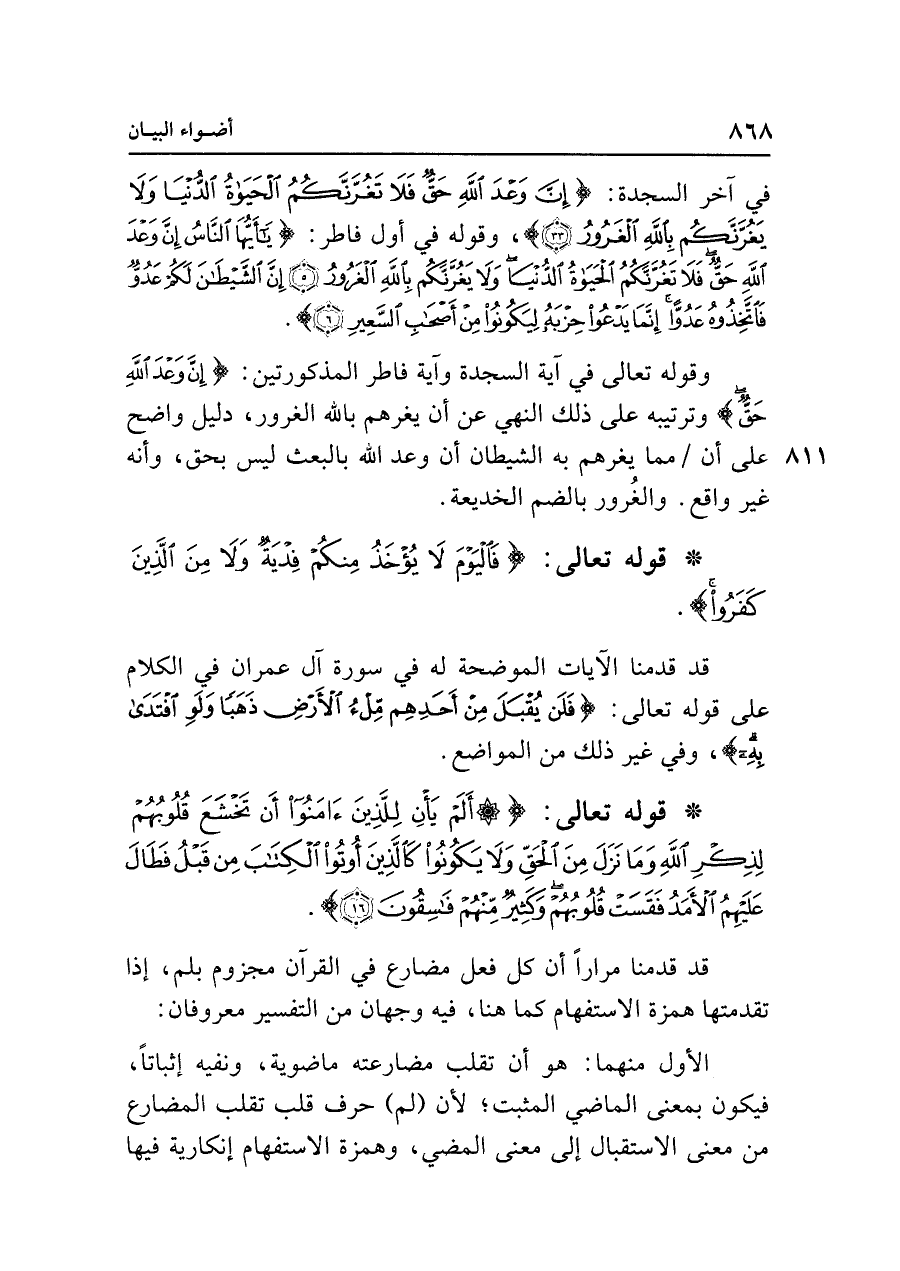 ٨٦٨ أضـواء البيـان
في آخر السجدة: ﴿ إِنَّ وَعْدَ ٱللَّهِ حَقٌّ فَلَا تَغُرَّنَّكُمُ ٱلْحَيَوٰةُ ٱلدُّنْيَا وَلَا
يَغُرَّنَّكُم بِٱللَّهِ ٱلْغَرُورُ ٣٣﴾، وقوله في أول فاطر: ﴿ يَٰٓأَيُّهَا ٱلنَّاسُ إِنَّ وَعْدَ
ٱللَّهِ حَقٌّ فَلَا تَغُرَّنَّكُمُ ٱلْحَيَوٰةُ ٱلدُّنْيَا وَلَا يَغُرَّنَّكُم بِٱللَّهِ ٱلْغَرُورُ ٥ إِنَّ ٱلشَّيْطَٰنَ لَكُمْ عَدُوٌّ
فَٱتَّخِذُوهُ عَدُوًّا إِنَّمَا يَدْعُوا۟ حِزْبَهُۥ لِيَكُونُوا۟ مِنْ أَصْحَٰبِ ٱلسَّعِيرِ ٦﴾.
وقوله تعالى في آية السجدة وآية فاطر المذكورتين: ﴿ إِنَّ وَعْدَ ٱللَّهِ
حَقٌّ﴾ وترتيبه على ذلك النهي عن أن يغرهم بالله الغرور، دليل واضح
٨١١ على أن / مما يغرهم به الشيطان أن وعد الله بالبعث ليس بحق، وأنه
غير واقع. والغُرور بالضم الخديعة.
* قوله تعالى: ﴿ فَٱلْيَوْمَ لَا يُؤْخَذُ مِنكُمْ فِدْيَةٌ وَلَا مِنَ ٱلَّذِينَ
كَفَرُوا۟﴾.
قد قدمنا الآيات الموضحة له في سورة آل عمران في الكلام
على قوله تعالى: ﴿ فَلَن يُقْبَلَ مِنْ أَحَدِهِم مِّلْءُ ٱلْأَرْضِ ذَهَبًا وَلَوِ ٱفْتَدَىٰ
بِهِۦٓ﴾، وفي غير ذلك من المواضع.
* قوله تعالى: ﴿ ۞ أَلَمْ يَأْنِ لِلَّذِينَ ءَامَنُوٓا۟ أَن تَخْشَعَ قُلُوبُهُمْ
لِذِكْرِ ٱللَّهِ وَمَا نَزَلَ مِنَ ٱلْحَقِّ وَلَا يَكُونُوا۟ كَٱلَّذِينَ أُوتُوا۟ ٱلْكِتَٰبَ مِن قَبْلُ فَطَالَ
عَلَيْهِمُ ٱلْأَمَدُ فَقَسَتْ قُلُوبُهُمْ وَكَثِيرٌ مِّنْهُمْ فَٰسِقُونَ ١٦﴾.
قد قدمنا مراراً أن كل فعل مضارع في القرآن مجزوم بلم، إذا
تقدمتها همزة الاستفهام كما هنا، فيه وجهان من التفسير معروفان:
الأول منهما: هو أن تقلب مضارعته ماضوية، ونفيه إثباتاً،
فيكون بمعنى الماضي المثبت؛ لأن (لم) حرف قلب تقلب المضارع
من معنى الاستقبال إلى معنى المضي، وهمزة الاستفهام إنكارية فيها